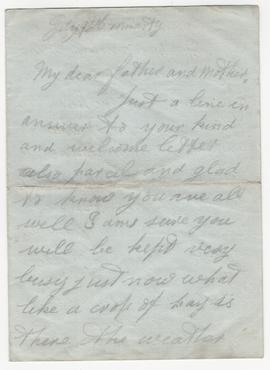 July
My dear father and mother,
Just a line in
answer to your kind
and welcome letter
also parcel and glad
to know you are all
well I am sure you
will be kept very
busy just now what
like a crop of hay is
there the weather